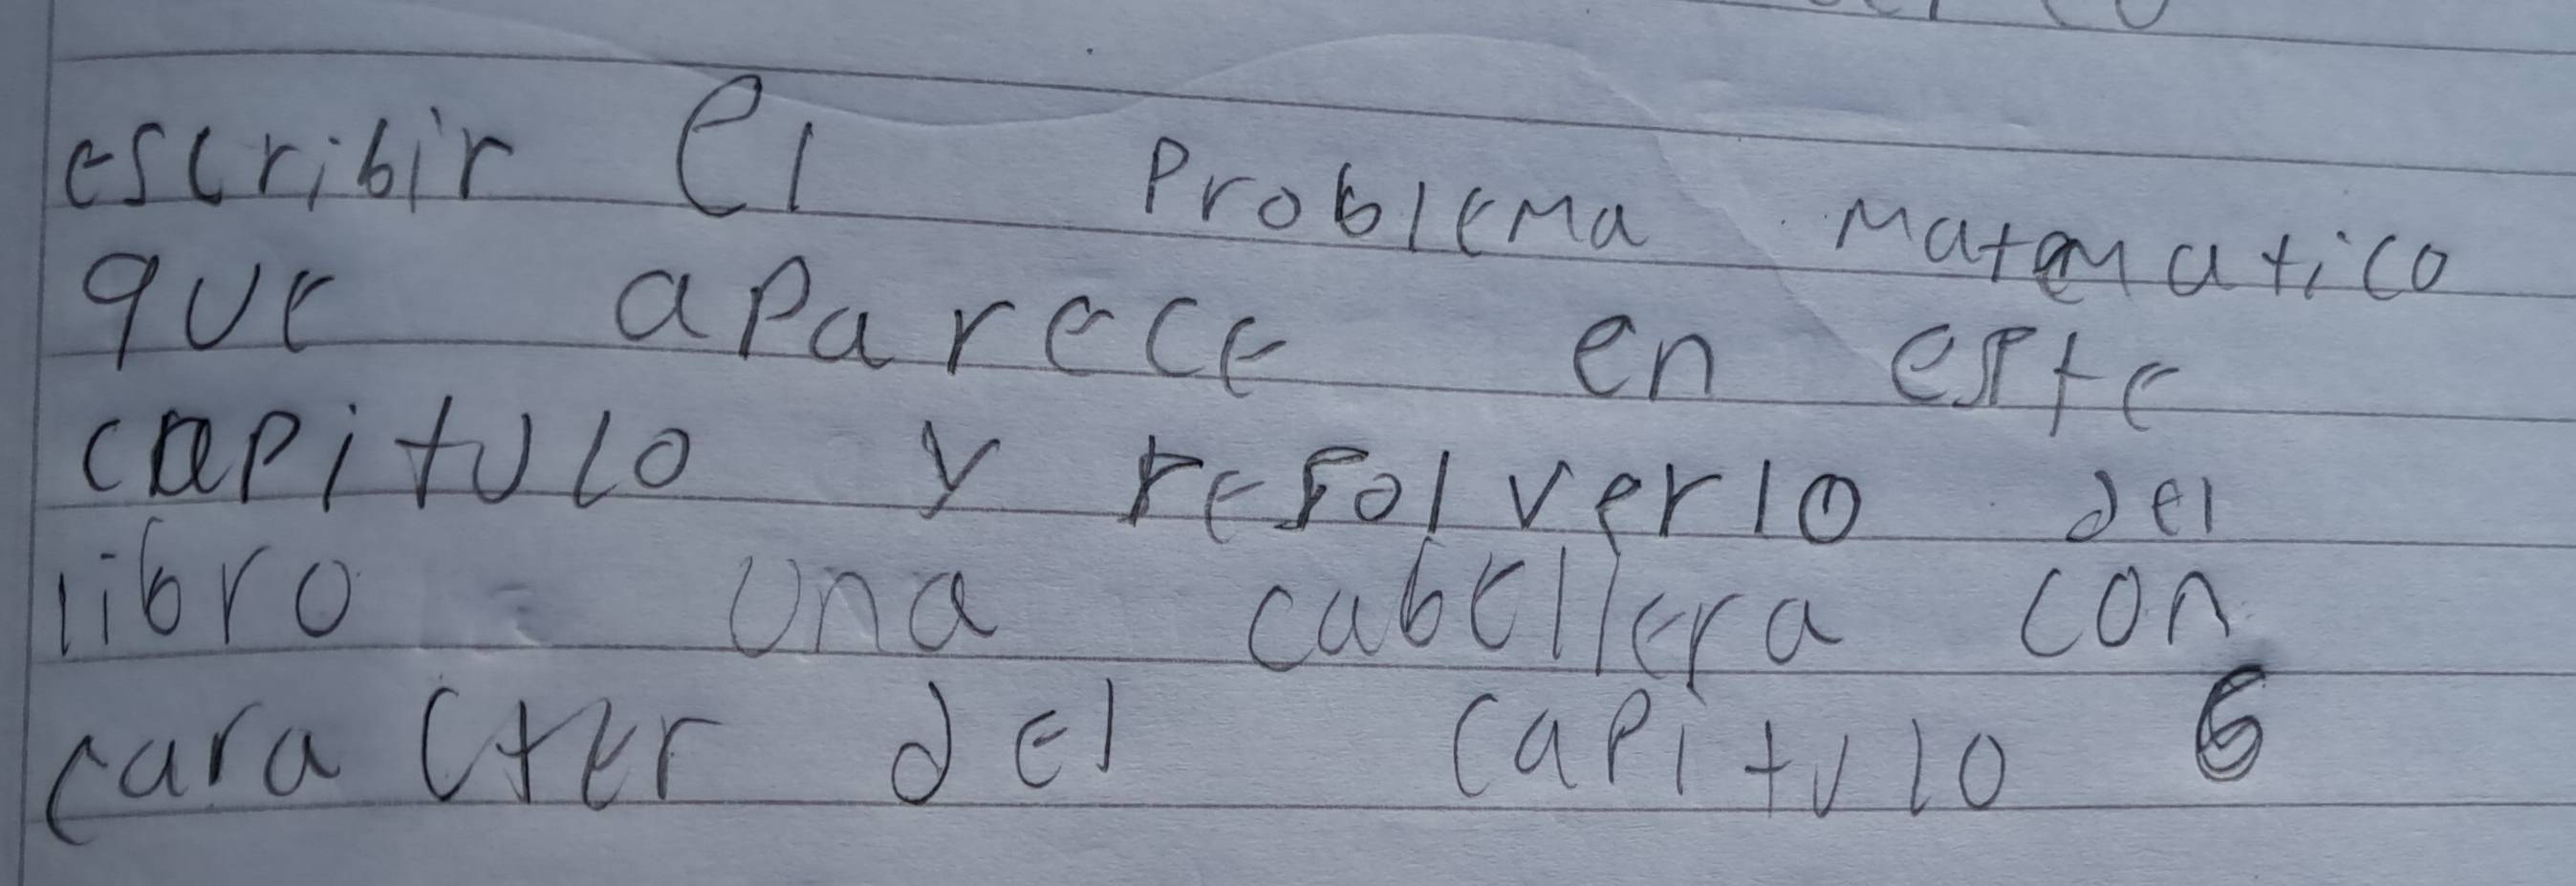 escribir el problema matematico
que aparece en este
capitulo y resolverlo del
libro una cabellera con
caracter del capitulo 6